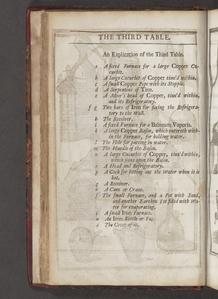 THE THIRD TABLE.
An Explication of the Third Table.
a A fixed Furnace for a large Copper Cucurbite.
b A large Cucurbit of Copper tinn'd within.
c A small Copper Pipe with its Stopple.
d A Serpentine of Tinn.
e A Moor's head of Copper, tinn'd within, and its Refrigeratory.
f g Two bars of Iron for fixing the Refrigeratory to the Wall.
h The Receiver.
i A fixed Furnace for a Balneum Vaporis.
l A large Copper Bason, which entereth within the Furnace, for holding water.
The Hole for putting in water.
m The Handle of the Bason.
n A large Cucurbit of Copper, tinn'd within, which goes upon the Bason.
o A Head and Refrigeratory.
p A Cock for letting out the Water when it is hot.
q A Receiver.
The small Furnace, and a Pot with Sand, and another Earthen
A small Iron Furnace.
An Iron Kettle or
The Cover of